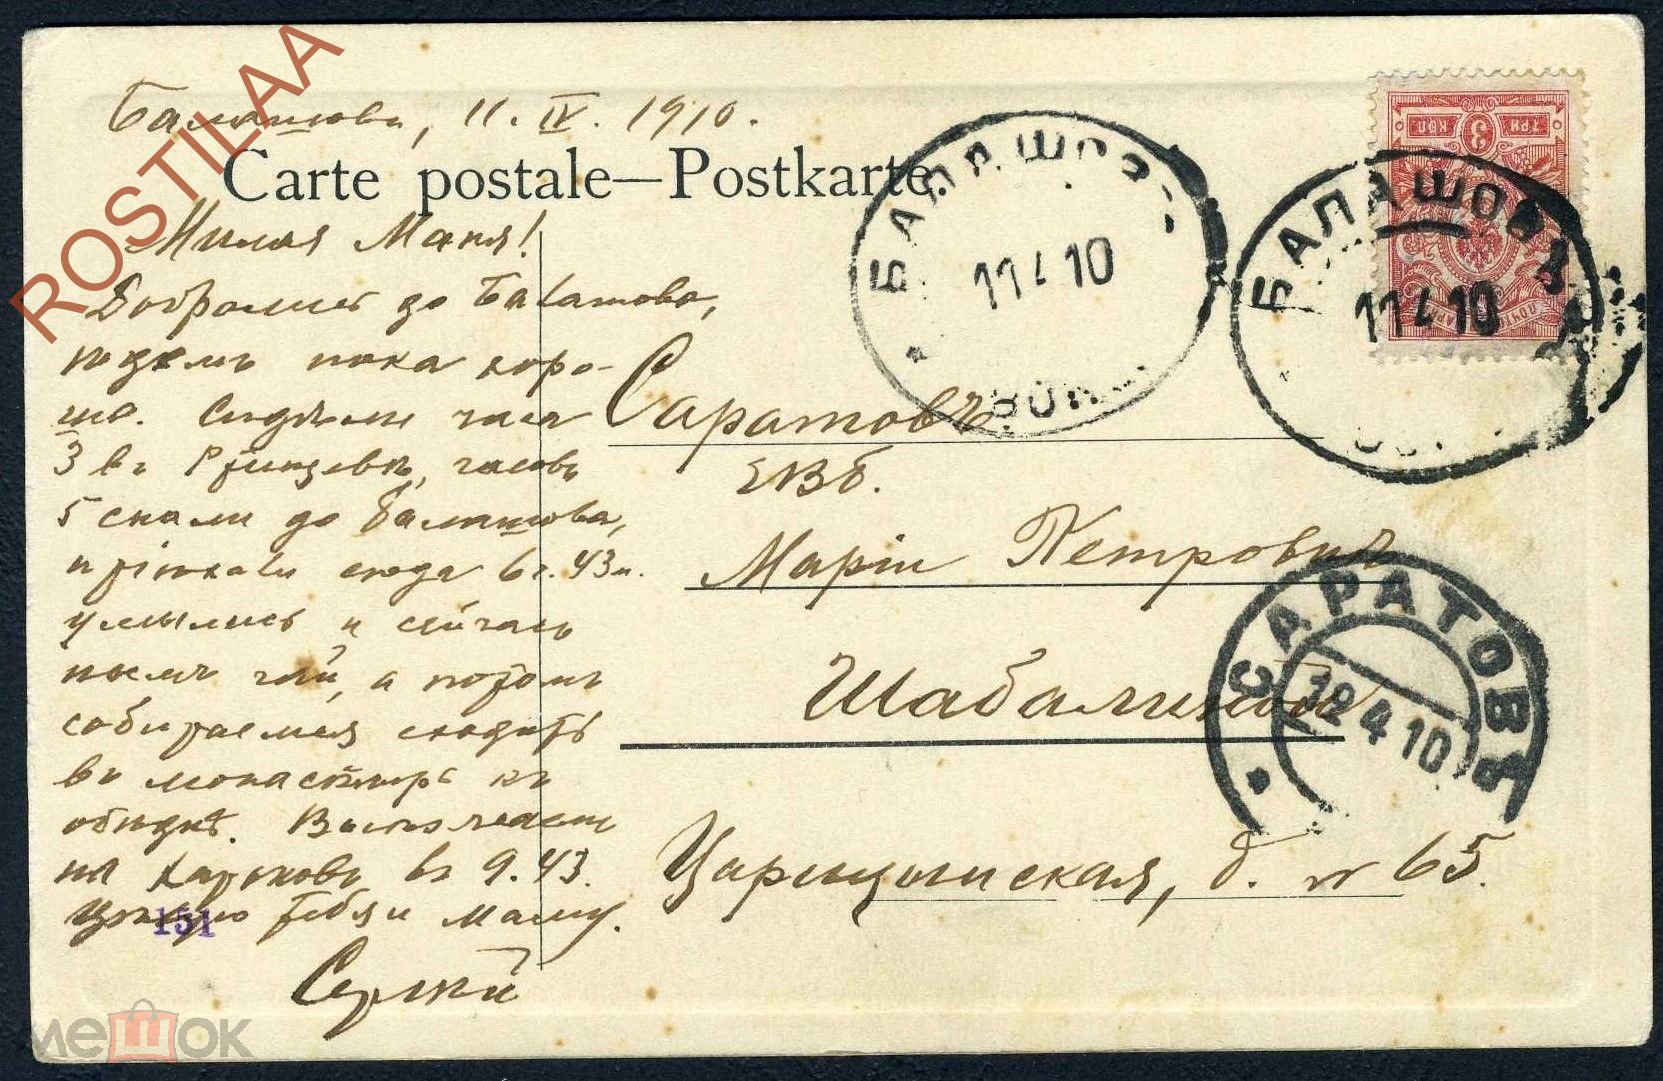 Балашовъ, 11. IV. 1910.
Carte postale—Postkarte.
Милая Маня!
Добрались до Балашова,
едемъ пока хоро-
шо. Сидѣли часа
3 въ Ртищевѣ, часовъ
5 спали до Балашова,
пріѣхали сюда 6 ч. 43 м.
умылись и сейчасъ
пьемъ чай, а потомъ
собираемся сходить
въ монастырь къ
обѣднѣ. Выѣзжаемъ
на Харьковъ въ 9.43.
Цѣлую тебя и маму.
Сергѣй
Саратовъ
ЕВб.
Маріи Петровнѣ
Шабалиной
Царицынская, д. № 65.
БАЛАШОВ
11 4 10
ВОКЗ
БАЛАШОВ
11 4 10
ТРИ 3 КОП
САРАТОВЪ
12 4 10
151
ROSTILAA
мешок